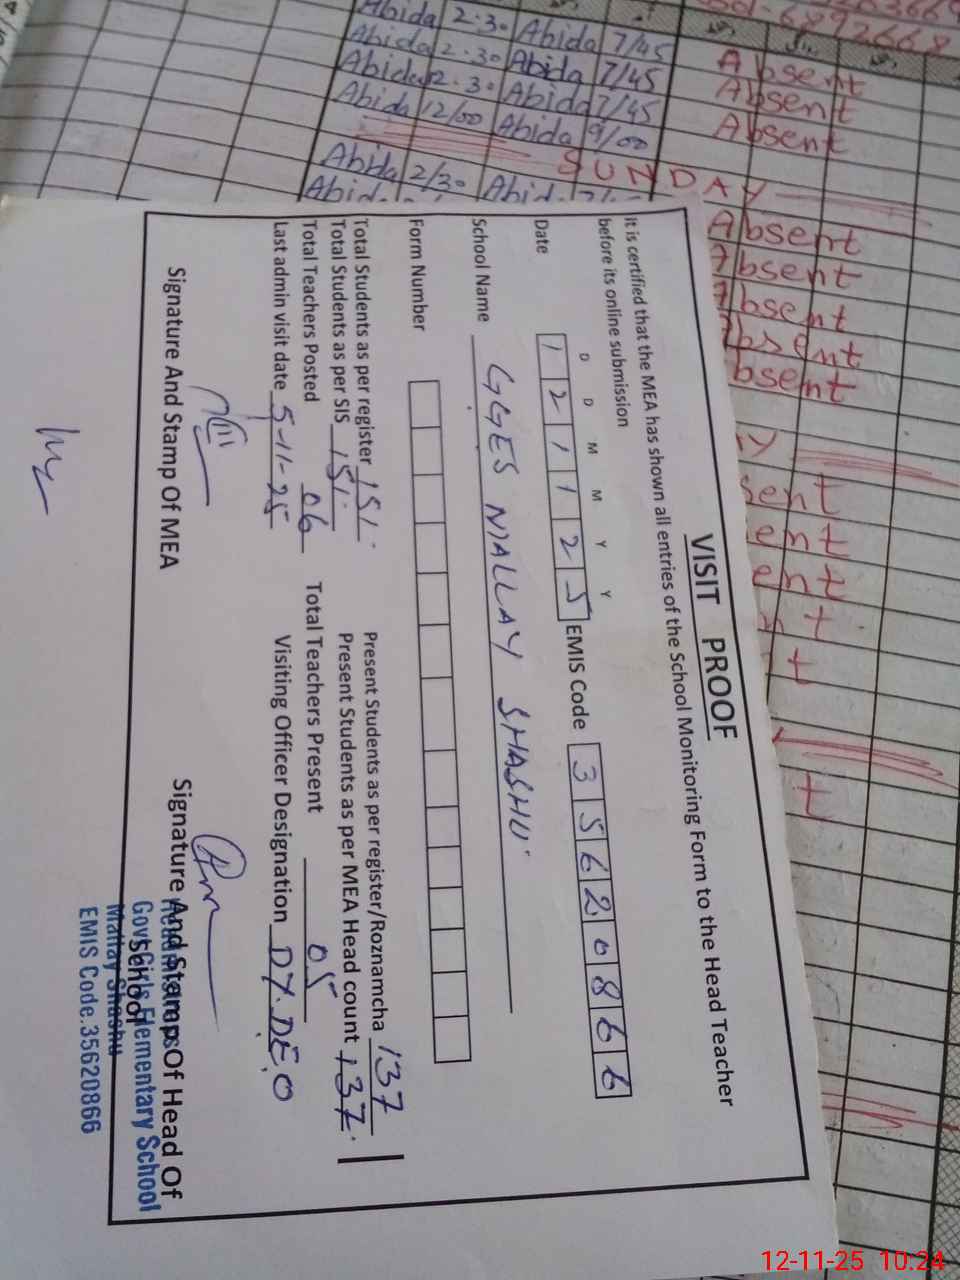 Abida 2.30 Abida 7/45
Abida 2.30 Abida 7/45 Absent
Abida 2.30 Abida 7/45 Absent
Abida 12/00 Abida 9/00 Absent
SUNDAY
Abida 2/30 Absent
Absent
Absent
Absent
Absent
VISIT PROOF
It is certified that the MEA has shown all entries of the School Monitoring Form to the Head Teacher
before its online submission
D D M M Y Y
Date 1 2 1 1 2 5 EMIS Code 3 5 6 2 0 8 6 6
School Name GGES MALLAY SHASHU
Form Number
Total Students as per register 151 Present Students as per register/Roznamcha 137
Total Students as per SIS 151 Present Students as per MEA Head count 137
Total Teachers Posted 06 Total Teachers Present 05
Last admin visit date 5-11-25 Visiting Officer Designation DY.DEO
Signature And Stamp Of MEA Signature And Stamp Of Head Of
School
Govt Girls Elementary School
Mallay Shashu
EMIS Code.35620866
12-11-25 10:24